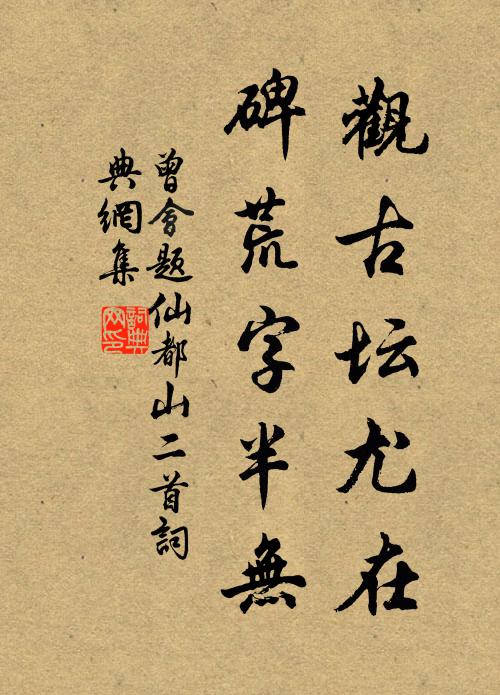 觀古坛尤在
碑荒字半無
曾會題仙都山二首詞
典網集
詞典
网印